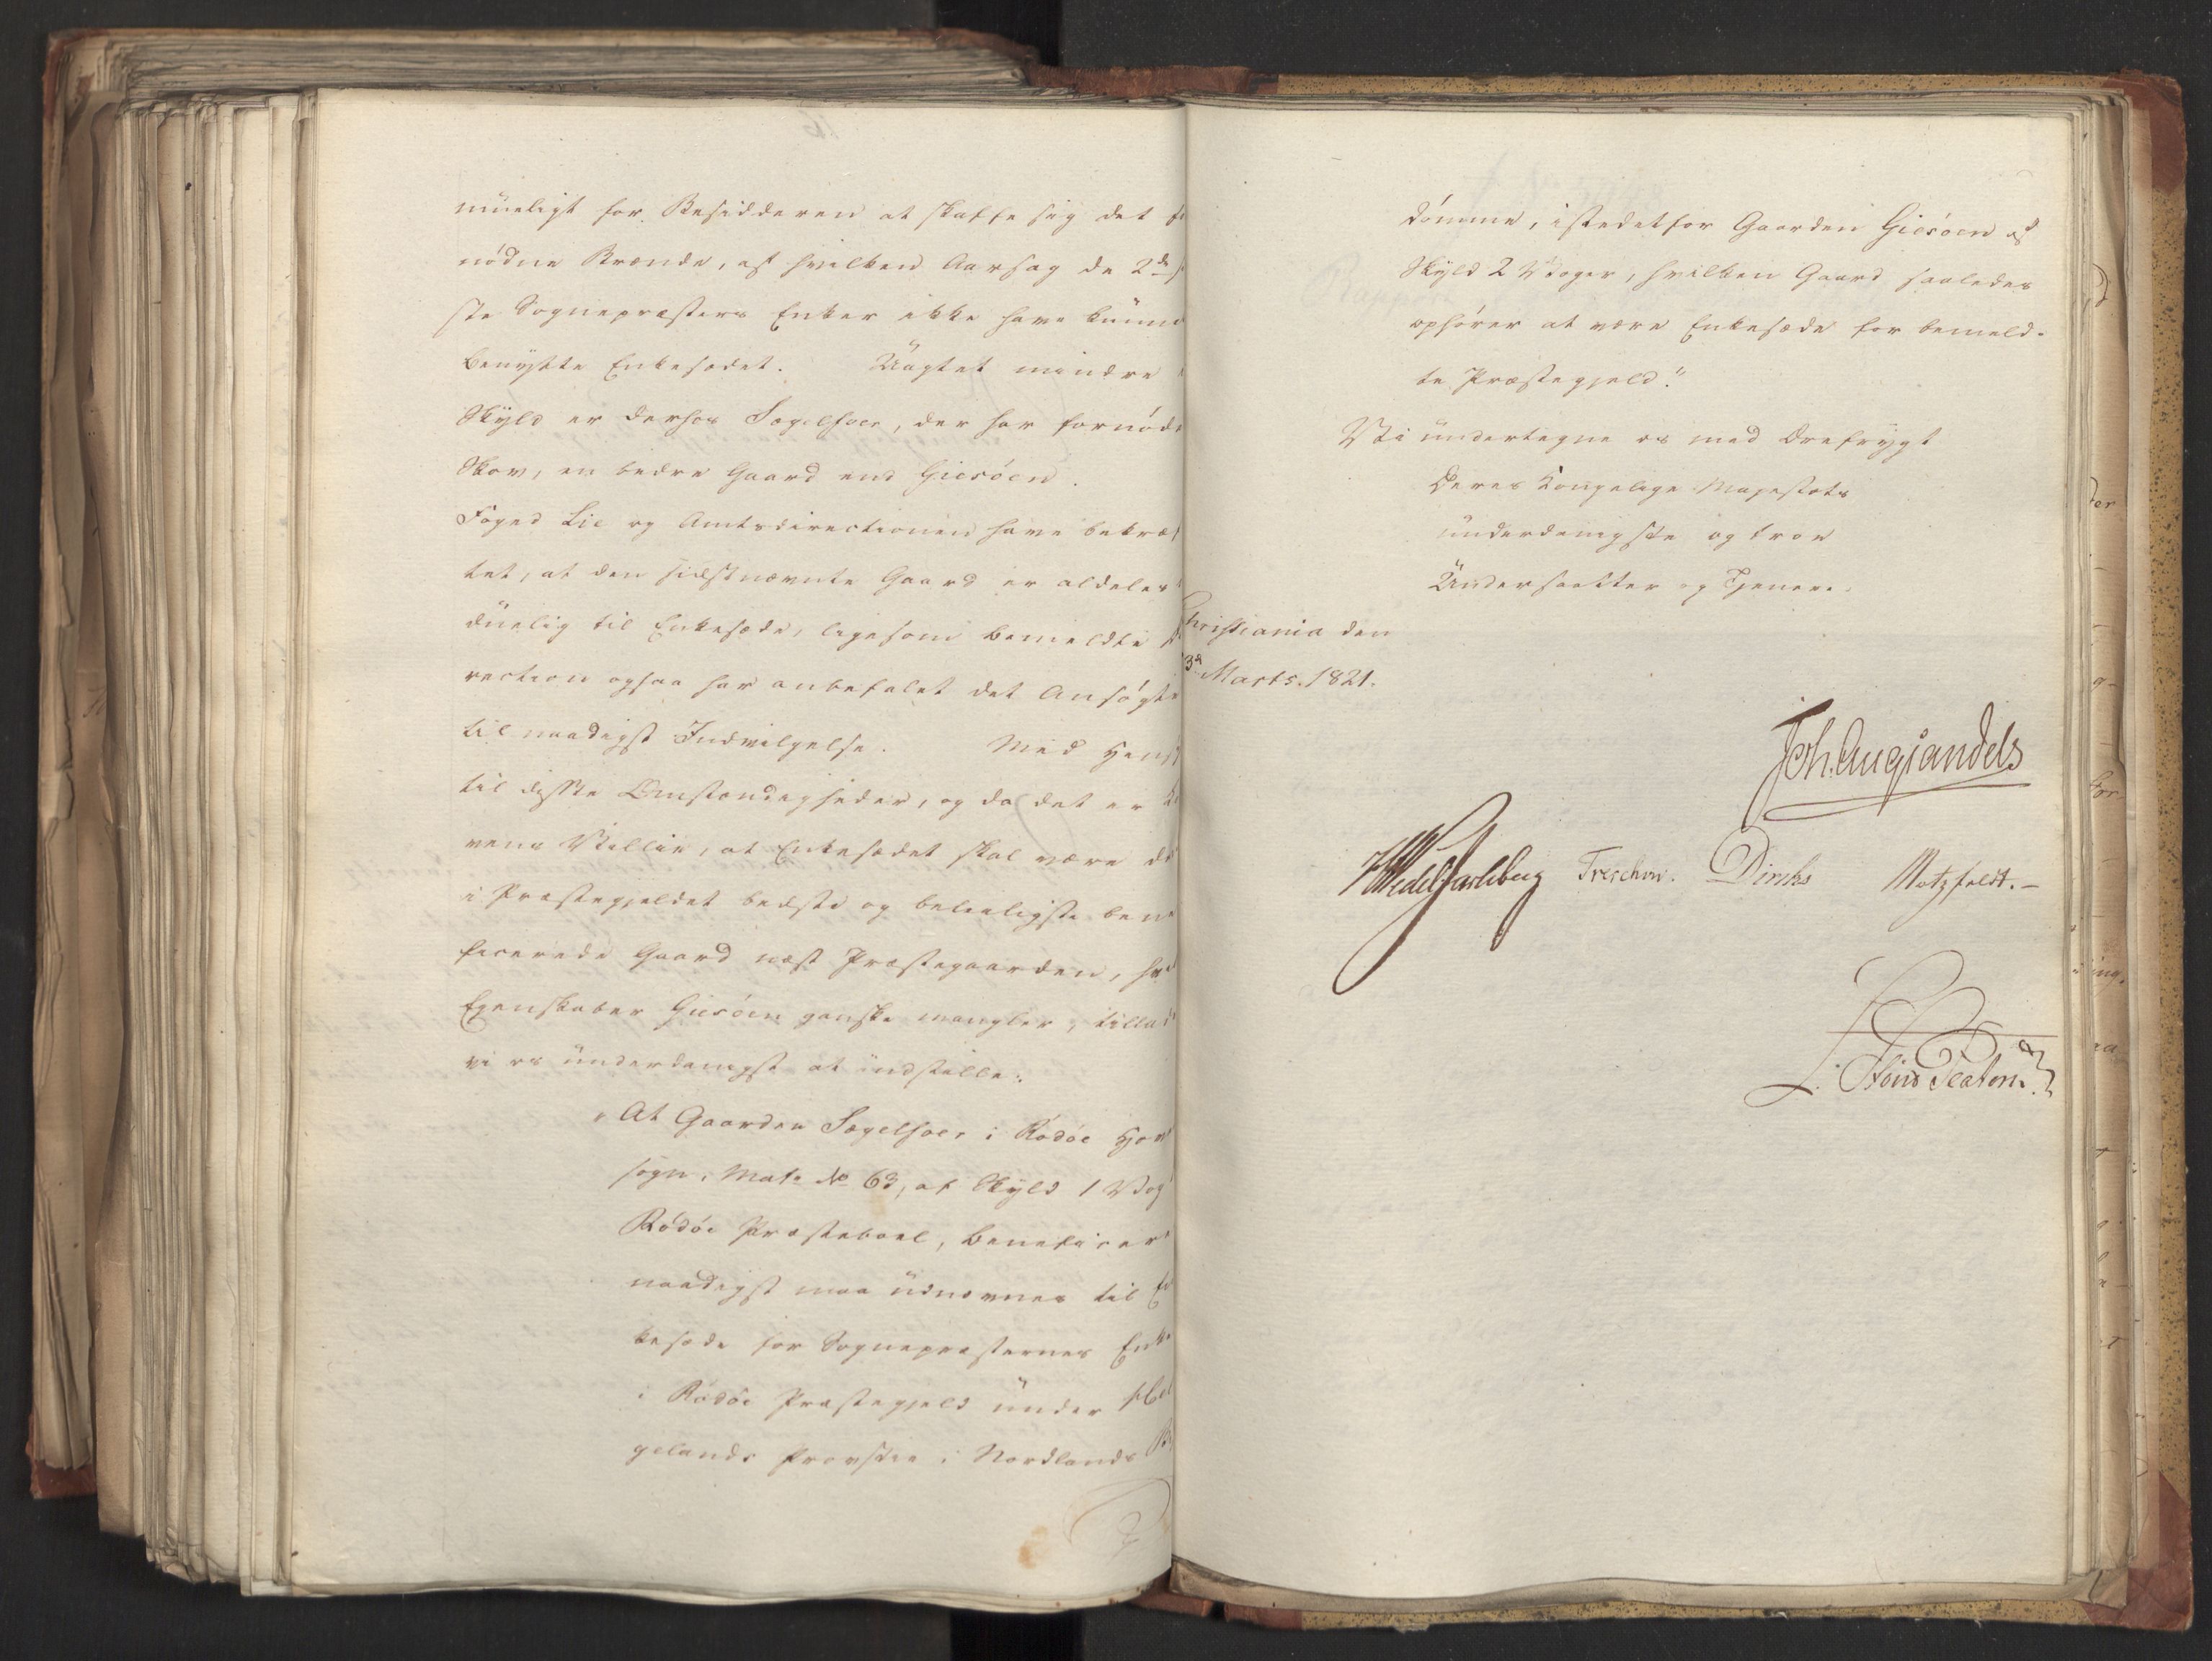 mueligt for Besidderen at skaffe sig det
nødne Brænde, af hvilken Aarsag de 2de
ste Sognepræsters Enker ikke have kunne
benytte Enkesædet. Uagtet mindre
Skyld er derhos Sægelfoer, der har fornød
Skov, en bedre Gaard end Giesøen.
Foged Lie og Amtsdirectionen have bekræf
tet, at den sidstnævnte Gaard er aldeles
duelig til Enkesæde, ligesom bemeldte
rection ogsaa har anbefalet det Ansøgte
til naadigst Indvilgelse. Med Hens
til disse Omstændigheder, og da det er
vens Villie, at Enkesædet skal være d
i Præstegjeldet bedste og beleiligste bene
ficerede Gaard næst Præstegaarden, hv
Egenskaber Giesøen ganske mangler, tillad
vi os underdanigst at indstille:
"At Gaarden Sægelfoer i Rødøe Hov
sogn, Matr. No 63, af Skyld 1 Vog
Rødøe Præsteboel, beneficeret
naadigst maa udnævnes til En
kesæde for Sognepræsternes Enke
i Rødøe Præstegjeld under Hel
gelands Provstie i Nordlands Bi
dømme, istedetfor Gaarden Giesøen af
Skyld 2 Voger, hvilken Gaard saaledes
ophører at være Enkesæde for bemeld-
te Præstegjeld."
Vi undertegne os med Ærefrygt
Deres Kongelige Majestæts
underdanigste og troe
Undersaatter og Tjenere.
Christiania den
3d Marts. 1821.
Joh. Aug Sandels
HWedel Jarlsberg Treschow. Diriks Motzfeldt.
L. Stoud Platou.